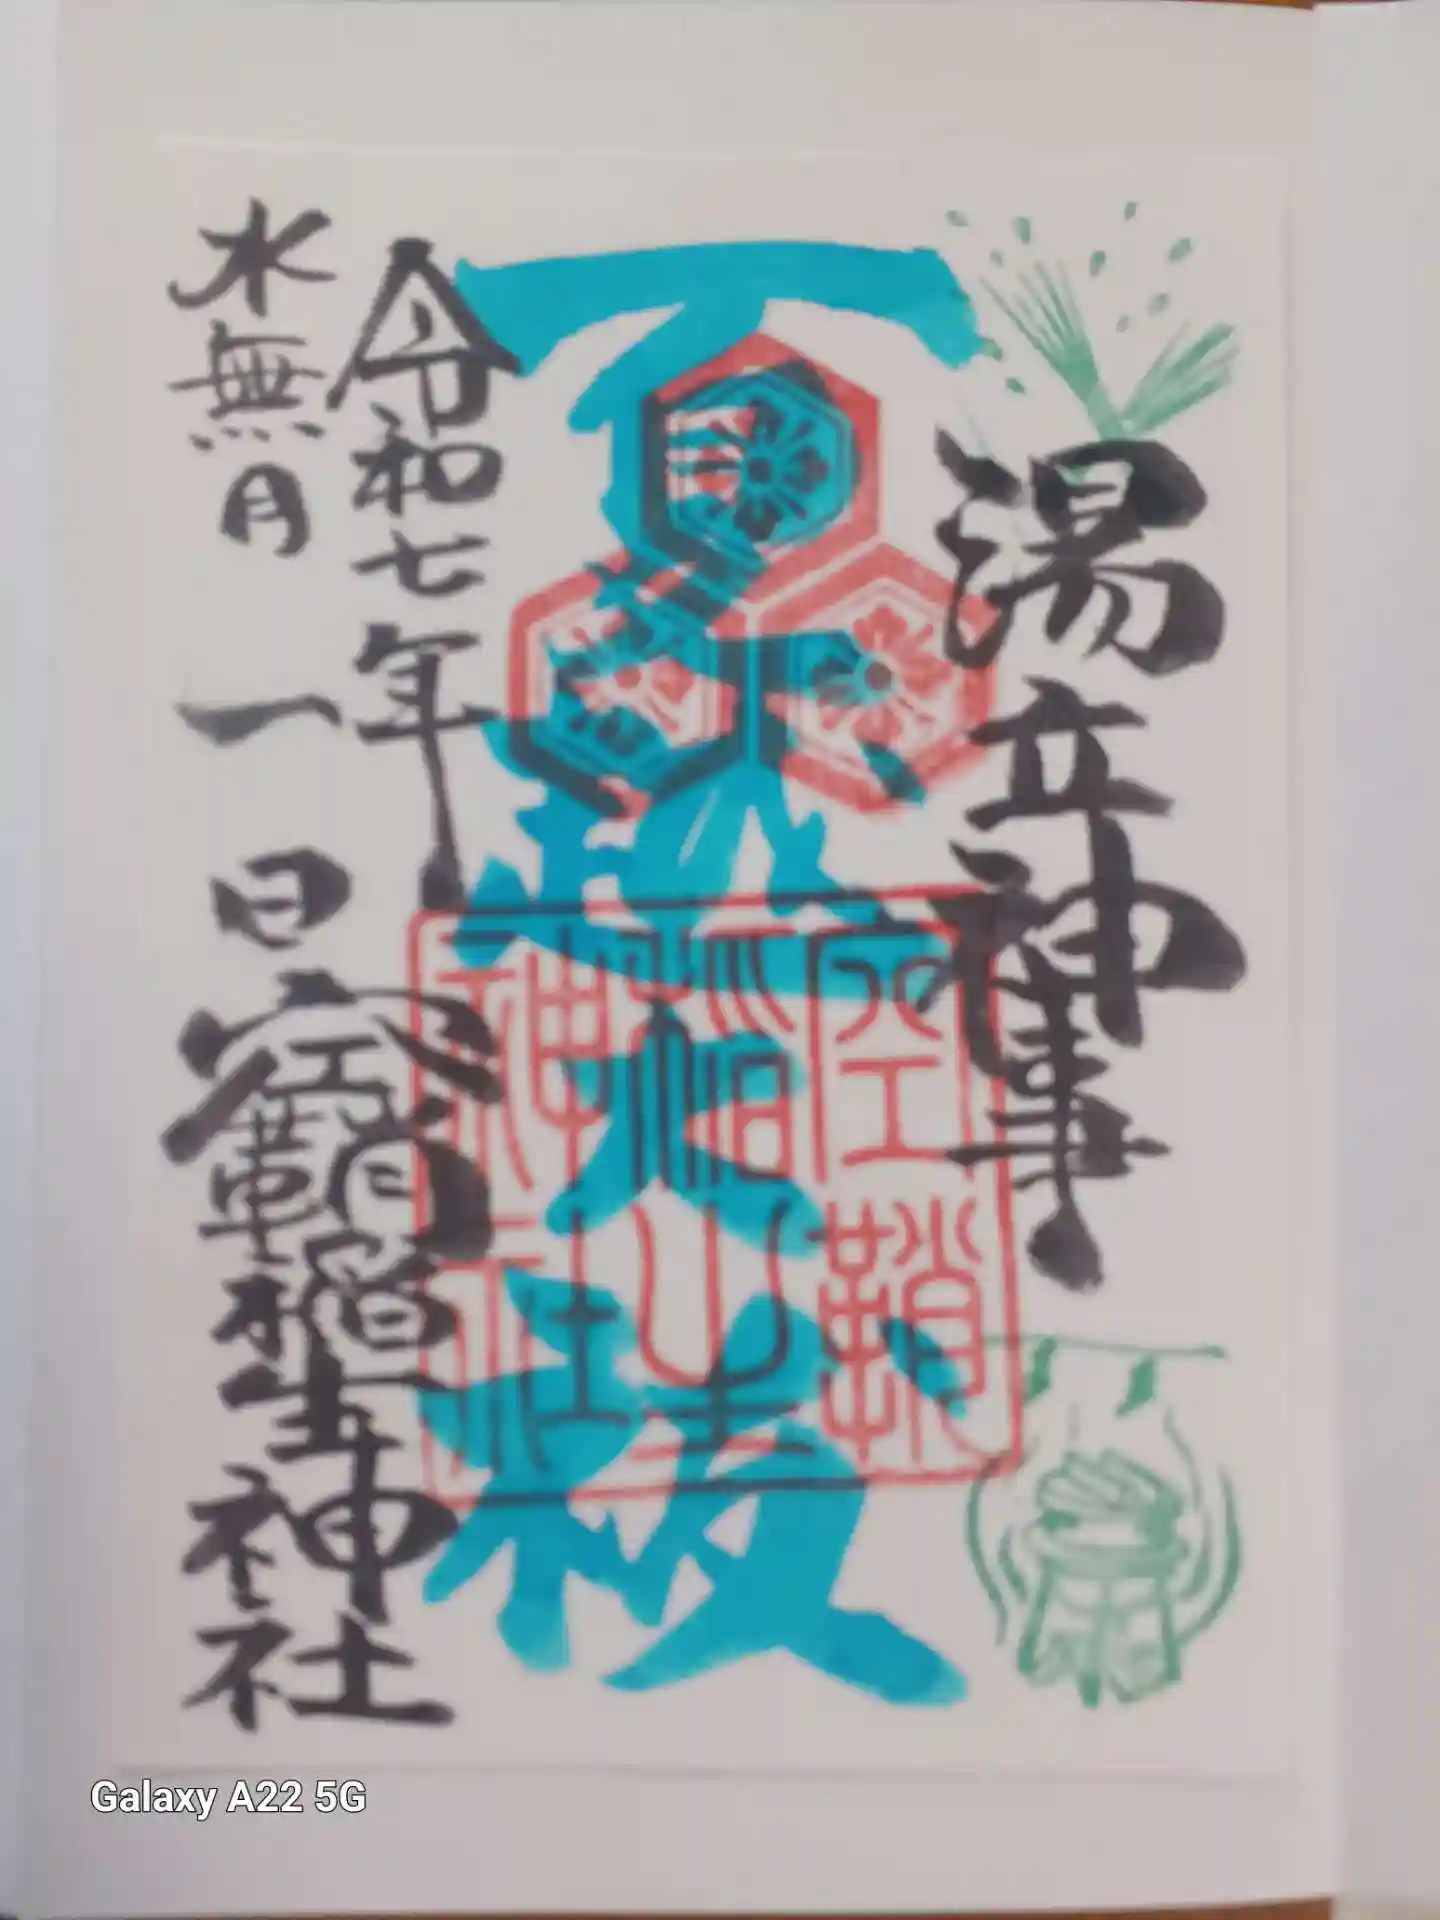 湯立神事
夏越大祓
空鞘
稲生
神社
令和七年
水無月一日
空鞘稲生神社
Galaxy A22 5G